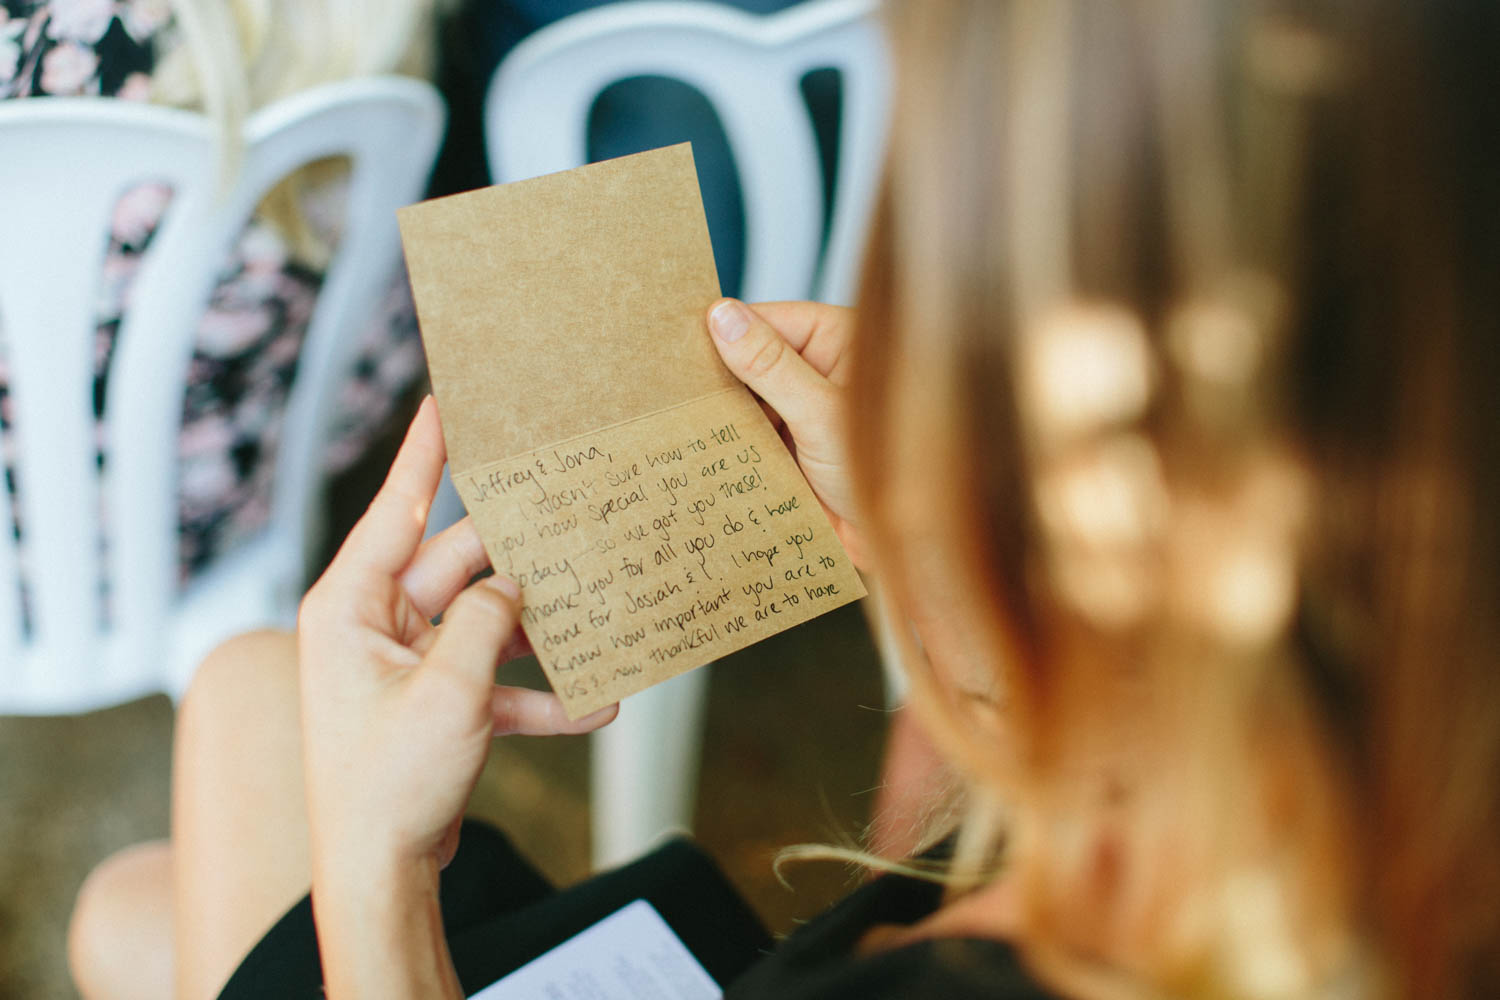 Jeffrey & Jona,
I wasn't sure how to tell
you how special you are us
today—so we got you these!
Thank you for all you do & have
done for Josiah & I. I hope you
know how important you are to
us & how thankful we are to have